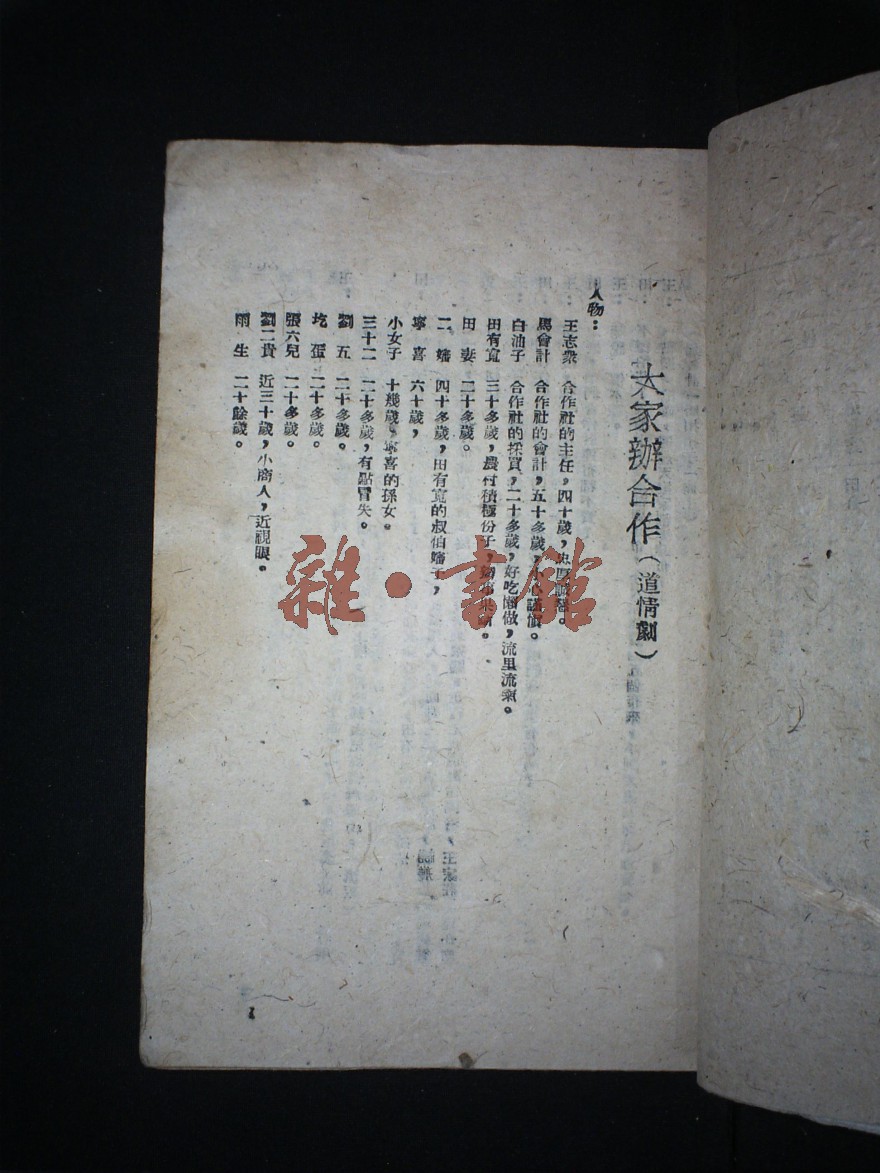 大家辦合作(道情劇)
人物：
王志衆　合作社的主任，四十歲，忠厚
馬會計　合作社的會計，五十多歲，小心謹慎。
白油子　合作社的採買，二十多歲，好吃懶做，流里流氣。
田有寬　三十多歲，農村積極份子，
田　妻　二十多歲。
二　嬸　四十多歲，田有寬的叔伯嬸子，
寧　喜　六十歲，
小女子　十幾歲，寧喜的孫女。
三十二　二十多歲，有點冒失。
劉　五　二十多歲。
圪　蛋　二十多歲。
張六兒　二十多歲。
劉二貴　近三十歲，小商人，近視眼。
雨　生　二十餘歲。
1
雜·書館